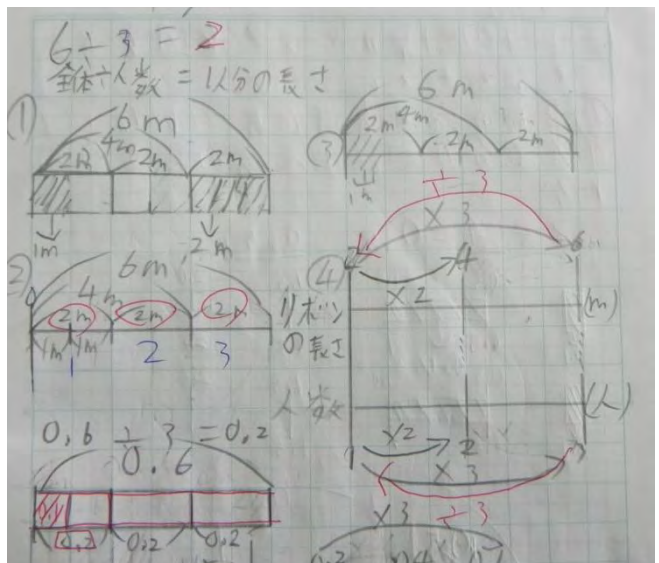 6÷3=2
全体÷人数=1人分の長さ
①
6m
4m
2m 2m 2m
1m 2m
②
6m
4m
2m 2m 2m
1m 1m
1 2 3
0.6÷3=0.2
0.6
0.1
0.2 0.2 0.2
③
6m
4m
2m 2m 2m
÷3
×3
④
2 4 6
×2
リボンの長さ (m)
人数 (人)
1 2 3
×2
×3
÷3
×3
0.2 0.4